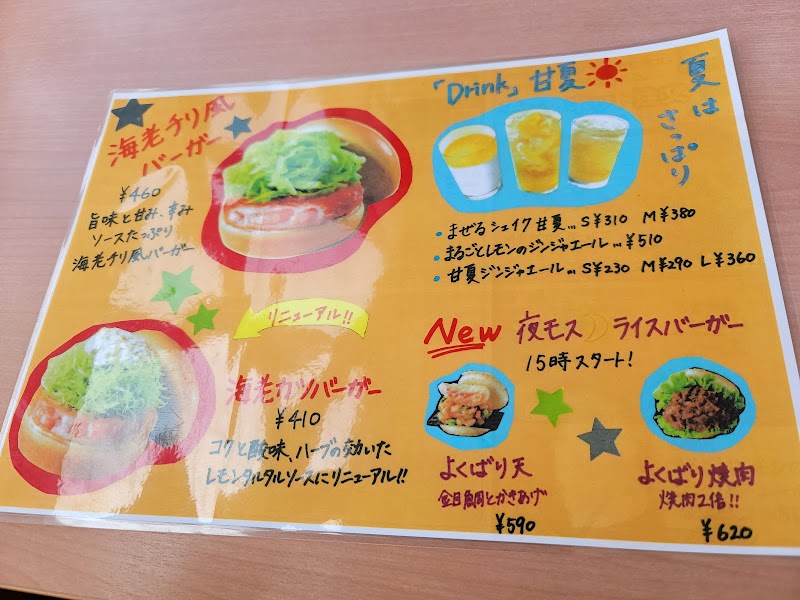 海老チリ風
バーガー
¥460
旨味と甘み、辛み
ソースたっぷり
海老チリ風バーガー
リニューアル!!
海老カツバーガー
¥410
コクと酸味、ハーブの効いた
レモンタルタルソースにリニューアル!!
「Drink」甘夏
夏は
さっぱり
・まぜるシェイク甘夏… S¥310 M¥380
・まるごとレモンのジンジャエール…¥510
・甘夏ジンジャエール… S¥230 M¥290 L¥360
New 夜モス ライスバーガー
15時スタート!
よくばり天
金目鯛とかきあげ
¥590
よくばり焼肉
焼肉2倍!!
¥620